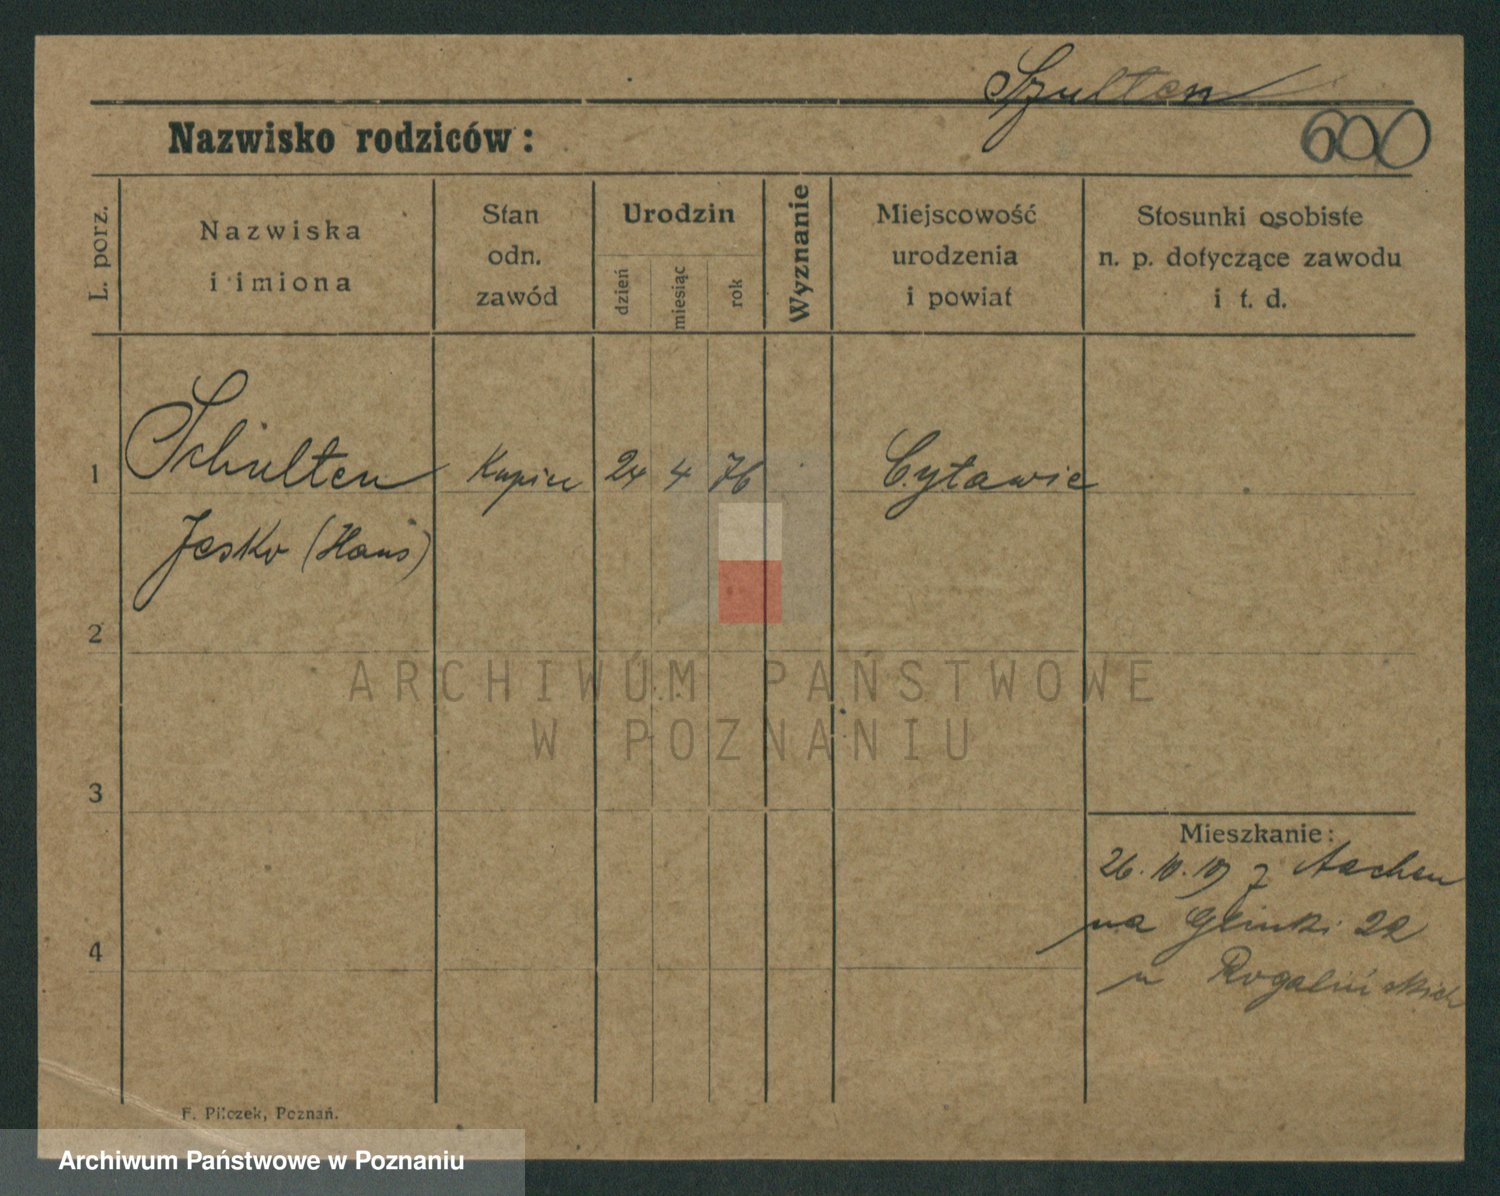 Szulten
600
Nazwisko rodziców:
L. porz.
Nazwiska
i imiona
Stan
odn.
zawód
Urodzin
dzień
miesiąc
rok
Wyznanie
Miejscowość
urodzenia
i powiat
Stosunki osobiste
n. p. dotyczące zawodu
i t. d.
1
Schulten
Kupiec
24
4
76
Cytawie
Jesko (Hans)
2
3
4
Mieszkanie:
26.10.19 z Aachen
na Glinki 22
u Rogalińskich
F. Pilczek, Poznań.
ARCHIWUM PAŃSTWOWE
W POZNANIU
Archiwum Państwowe w Poznaniu